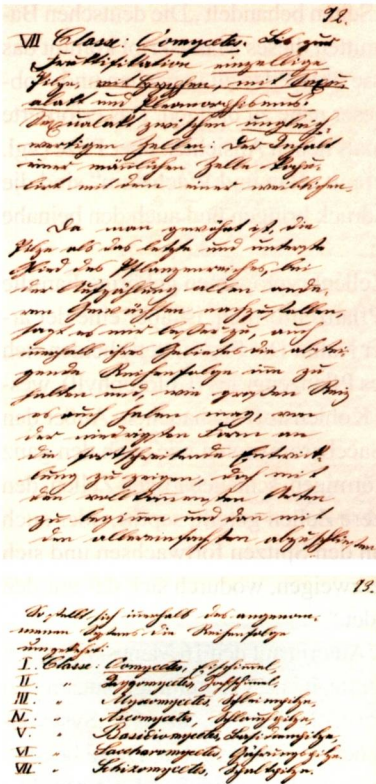 12.
VII Classe: Oomycetes. Bis zur
Fruktifikation einzellige
Pilze mit Hyphen, mit Sexu-
alakt und Pleomorphismus.
Sexualakt zwischen ungleich-
wertigen Zellen: Der Inhalt
einer männlichen Zelle kopu-
liert mit dem einer weiblichen.
Da man gewohnt ist, die
Pilze als das letzte und unterste
Glied des Pflanzenreiches, bei
der Aufzählung allen ande-
ren Gewächsen nachzustellen,
sagt es mir besser zu, auch
innerhalb ihres Gebietes die abstei-
gende Reihenfolge ein zu
halten und, wie großen Reiz
es auch haben mag, von
der niedrigsten Form an
die fortschreitende Entwick-
lung zu zeigen, doch mit
den vollkommensten Arten
zu beginnen und dann mit
den allereinfachsten abzuschließen
13.
So stellt sich innerhalb des angenom-
menen Systems die Reihenfolge
umgekehrt:
I. Classe: Oomycetes,
II. " Zygomycetes,
III. " Myxomycetes, Schleimpilze,
IV. " Ascomycetes, Schlauchpilze,
V. " Basidiomycetes, Basidienpilze,
VI. " Saccharomycetes, Gährungspilze,
VII. " Schizomycetes, Spaltpilze.